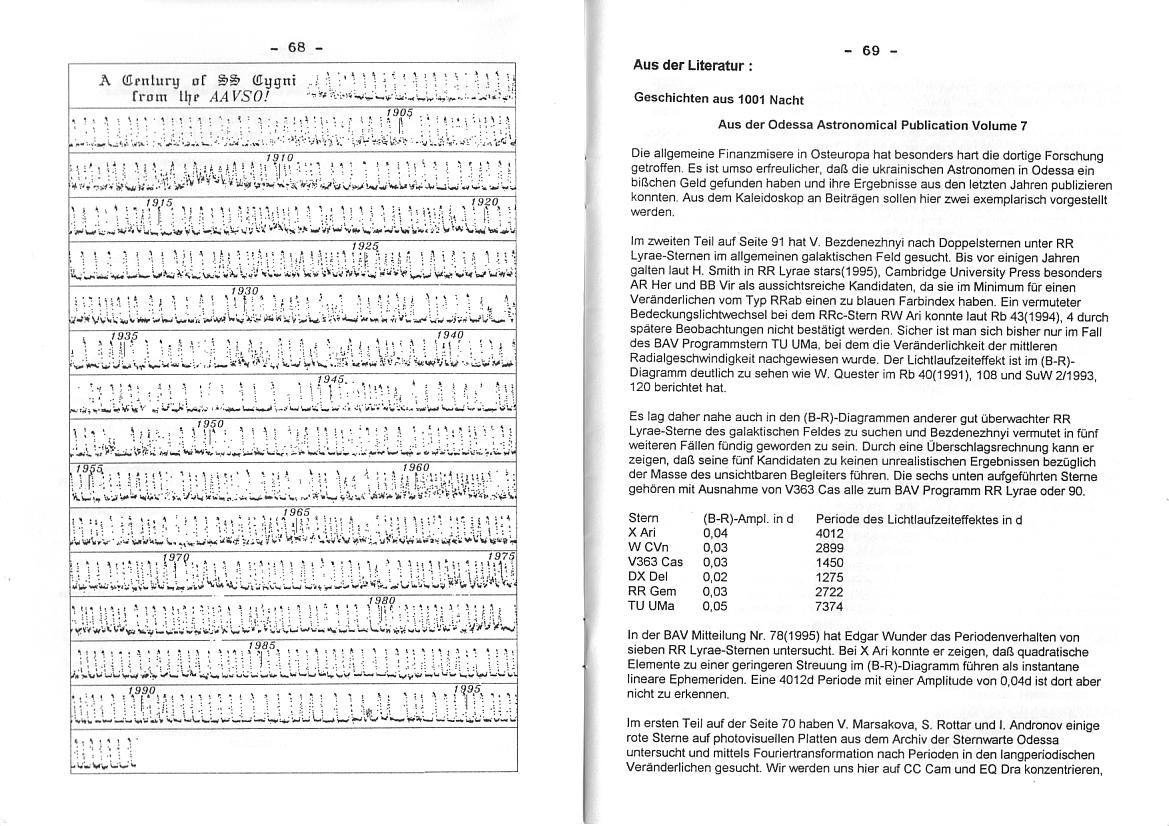 - 68 -
A Century of SS Cygni
from the AAVSO!
1905
1910
1915 1920
1925
1930
1935 1940
1945
1950
1955 1960
1965
1970 1975
1980
1985
1990 1995
- 69 -
Aus der Literatur :
Geschichten aus 1001 Nacht
Aus der Odessa Astronomical Publication Volume 7
Die allgemeine Finanzmisere in Osteuropa hat besonders hart die dortige Forschung
getroffen. Es ist umso erfreulicher, daß die ukrainischen Astronomen in Odessa ein
bißchen Geld gefunden haben und ihre Ergebnisse aus den letzten Jahren publizieren
konnten. Aus dem Kaleidoskop an Beiträgen sollen hier zwei exemplarisch vorgestellt
werden.
Im zweiten Teil auf Seite 91 hat V. Bezdenezhnyi nach Doppelsternen unter RR
Lyrae-Sternen im allgemeinen galaktischen Feld gesucht. Bis vor einigen Jahren
galten laut H. Smith in RR Lyrae stars(1995), Cambridge University Press besonders
AR Her und BB Vir als aussichtsreiche Kandidaten, da sie im Minimum für einen
Veränderlichen vom Typ RRab einen zu blauen Farbindex haben. Ein vermuteter
Bedeckungslichtwechsel bei dem RRc-Stern RW Ari konnte laut Rb 43(1994), 4 durch
spätere Beobachtungen nicht bestätigt werden. Sicher ist man sich bisher nur im Fall
des BAV Programmstern TU UMa, bei dem die Veränderlichkeit der mittleren
Radialgeschwindigkeit nachgewiesen wurde. Der Lichtlaufzeiteffekt ist im (B-R)-
Diagramm deutlich zu sehen wie W. Quester im Rb 40(1991), 108 und SuW 2/1993,
120 berichtet hat.
Es lag daher nahe auch in den (B-R)-Diagrammen anderer gut überwachter RR
Lyrae-Sterne des galaktischen Feldes zu suchen und Bezdenezhnyi vermutet in fünf
weiteren Fällen fündig geworden zu sein. Durch eine Überschlagsrechnung kann er
zeigen, daß seine fünf Kandidaten zu keinen unrealistischen Ergebnissen bezüglich
der Masse des unsichtbaren Begleiters führen. Die sechs unten aufgeführten Sterne
gehören mit Ausnahme von V363 Cas alle zum BAV Programm RR Lyrae oder 90.
Stern (B-R)-Ampl. in d Periode des Lichtlaufzeiteffektes in d
X Ari 0,04 4012
W CVn 0,03 2899
V363 Cas 0,03 1450
DX Del 0,02 1275
RR Gem 0,03 2722
TU UMa 0,05 7374
In der BAV Mitteilung Nr. 78(1995) hat Edgar Wunder das Periodenverhalten von
sieben RR Lyrae-Sternen untersucht. Bei X Ari konnte er zeigen, daß quadratische
Elemente zu einer geringeren Streuung im (B-R)-Diagramm führen als instantane
lineare Ephemeriden. Eine 4012d Periode mit einer Amplitude von 0,04d ist dort aber
nicht zu erkennen.
Im ersten Teil auf der Seite 70 haben V. Marsakova, S. Rottar und I. Andronov einige
rote Sterne auf photovisuellen Platten aus dem Archiv der Sternwarte Odessa
untersucht und mittels Fouriertransformation nach Perioden in den langperiodischen
Veränderlichen gesucht. Wir werden uns hier auf CC Cam und EQ Dra konzentrieren,